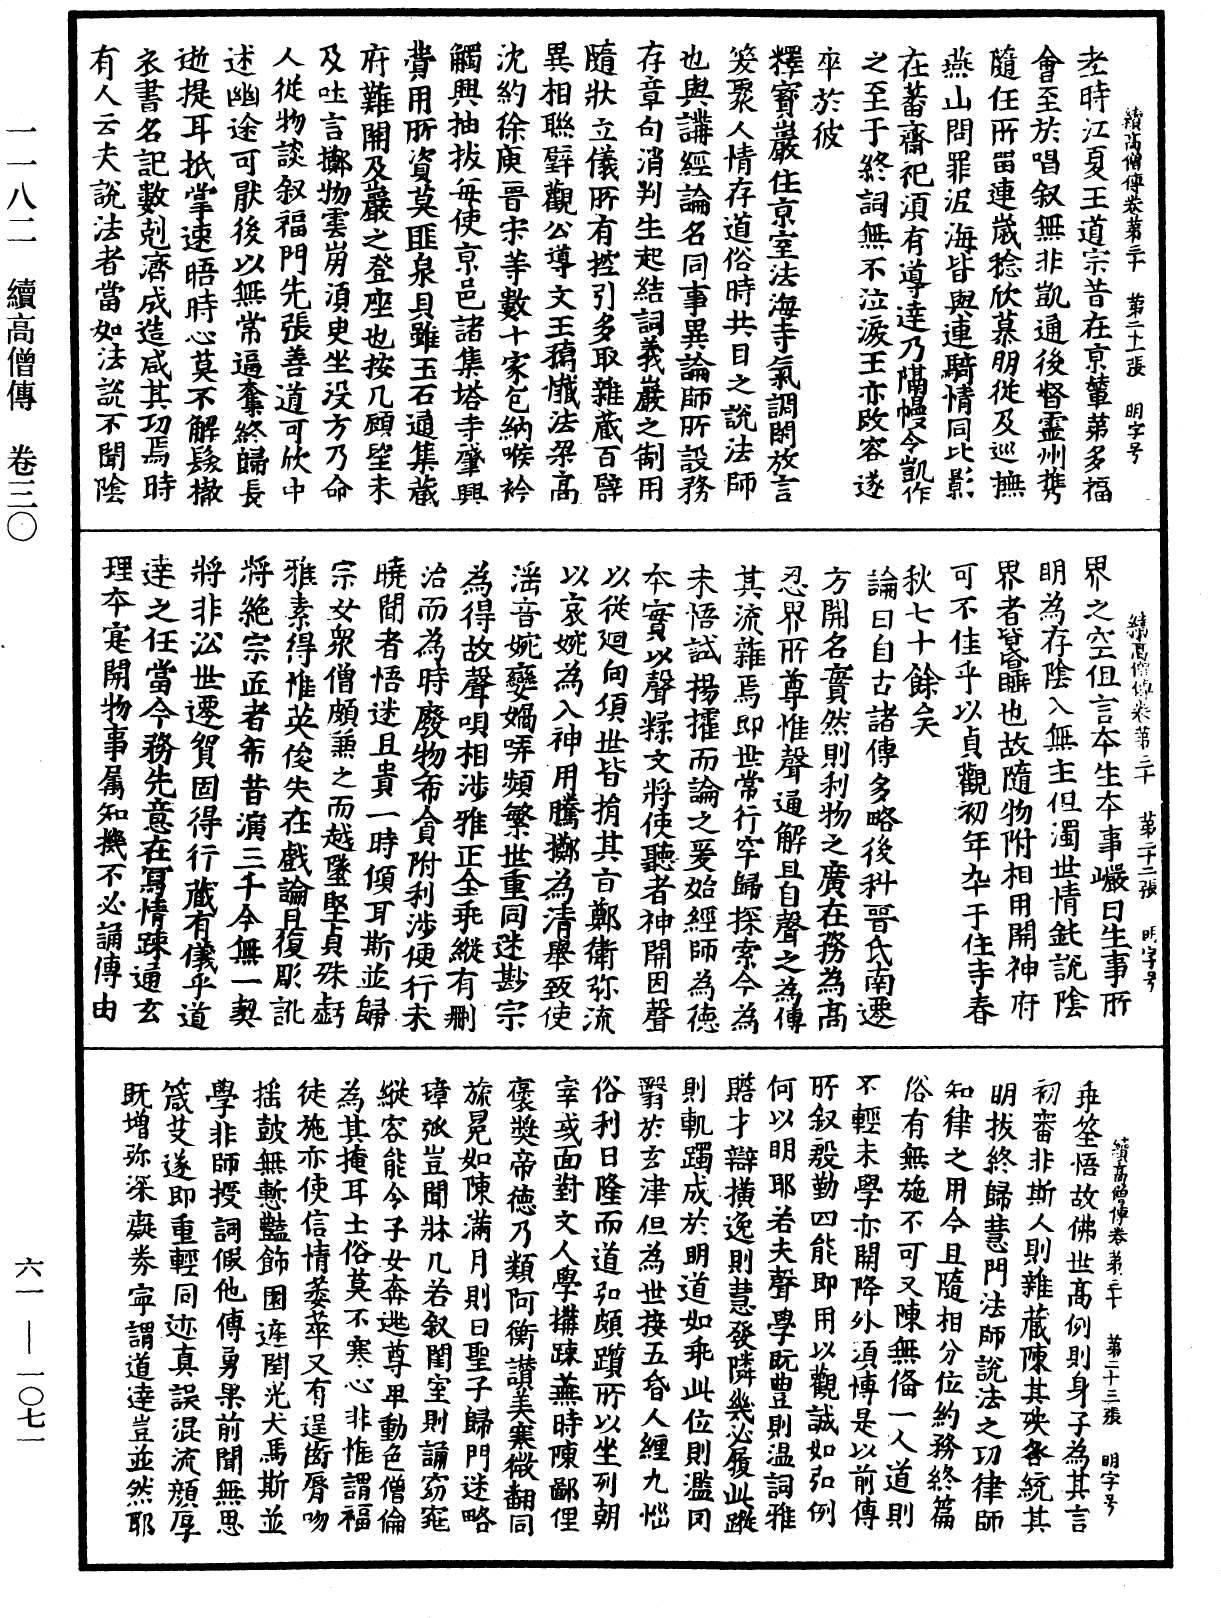 續高僧傳卷第三十 第二十一張 明字号
老時江夏王道宗昔在京輦第多福
會至於唱叙無非凱通後督靈州携
隨任所留連歲稔欣慕朋從及巡撫
燕山問罪泥海皆與連騎情同比影
在蕃齋祀須有導達乃隔幔令凱作
之至于終詞無不泣淚王亦改容遂
卒於彼
釋寶巖住京室法海寺氣調閑放言
笑聚人情存道俗時共目之說法師
也與講經論名同事異論師所設務
存章句消判生起結詞義巖之制用
隨狀立儀所有控引多取雜藏百譬
異相聯璧觀公導文王孺懺法梁高
沈約徐庾晋宋等數十家包納喉衿
觸興抽拔每使京邑諸集塔寺肇興
費用所資莫匪泉貝雖玉石通集藏
府難開及巖之登座也按几顧望未
及吐言擲物雲崩須臾坐没方乃命
人從物談叙福門先張善道可欣中
述幽途可猒後以無常逼奪終歸長
逝提耳扺掌速晤時心莫不解髮撤
衣書名記數剋濟成造咸其功焉時
有人云夫說法者當如法說不聞陰
續高僧傳卷第三十 第二十二張 明字号
界之空但言本生本事巖曰生事所
明為存陰入無主但濁世情鈍說陰
界者皆昏睡也故隨物附相用開神府
可不佳乎以貞觀初年卒于住寺春
秋七十餘矣
論曰自古諸傳多略後科晋氏南遷
方開名實然則利物之廣在務為高
忍界所尊惟聲通解且自聲之為傳
其流雜焉即世常行罕歸探索今為
未悟試揚攉而論之爰始經師為德
本實以聲糅文將使聽者神開因聲
以從迴向頃世皆捐其旨鄭衛弥流
以哀婉為入神用騰擲為清舉致使
淫音婉孌嬌哢頻繁世重同迷尠宗
為得故聲唄相涉雅正全乖縱有刪
治而為時廢物希貪附利涉便行未
曉聞者悟迷且貴一時傾耳斯並歸
宗女衆僧頗兼之而越墜堅貞殊虧
雅素得惟英俊失在戲論且復彫訛
將絶宗匠者希昔演三千今無一契
將非沿世遷貿固得行藏有儀乎道
達之任當今務先意在寫情疎通玄
理本寔開物事屬知機不必誦傳由
續高僧傳卷第三十 第二十三張 明字号
乖筌悟故佛世高例則身子為其言
初審非斯人則雜藏陳其殃咎統其
明拔終歸慧門法師說法之功律師
知律之用今且隨相分位約務終篇
俗有無施不可又陳無俻一人道則
不輕末學亦開降外須博是以前傳
所叙殷勤四能即用以觀誠如弘例
何以明耶若夫聲學既豊則温詞雅
贍才辯横逸則慧發隣幾必履此蹤
則軌躅成於明道如乖此位則濫罔
翳於玄津但為世接五昏人纏九惱
俗利日隆而道弘頗躓所以坐列朝
宰或面對文人學搆疎蕪時陳鄙俚
褒奬帝德乃類阿衡讃美寒微翻同
旒冕如陳滿月則曰聖子歸門迷略
璋弧豈聞牀几若叙閨室則誦窈窕
縱容能令子女奔逃尊卑動色僧倫
為其掩耳士俗莫不寒心非惟謂福
徒施亦使信情萎萃又有逞衒脣吻
揺鼓無慙豔飾園庭閨光犬馬斯並
學非師授詞假他傳勇果前聞無思
箴艾遂即重輕同迹真誤混流顔厚
既增弥深癡券寧謂道達豈並然耶
一一八二 續高僧傳 卷三〇
六一—一〇七一